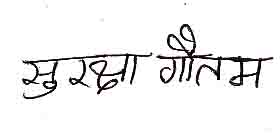 सुरक्षा गौतम